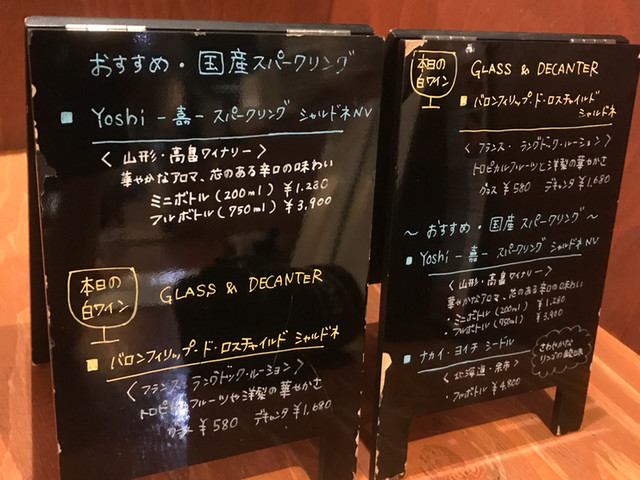 おすすめ・国産スパークリング
Yoshi -嘉- スパークリング シャルドネNV
<山形・高畠ワイナリー>
華やかなアロマ、芯のある辛口の味わい
ミニボトル(200ml) ¥1,280
フルボトル(750ml) ¥3,900
本日の
白ワイン
GLASS & DECANTER
バロンフィリップ・ド・ロスチャイルド シャルドネ
<フランス・ラングドック・ルーション>
トロピカルフルーツや洋梨の華やかさ
グラス ¥580 デキャンタ ¥1,680
本日の
白ワイン
GLASS & DECANTER
バロンフィリップ・ド・ロスチャイルド
シャルドネ
<フランス・ラングドック・ルーション>
トロピカルフルーツと洋梨の華やかさ
グラス ¥580 デキャンタ ¥1,680
～おすすめ・国産スパークリング～
Yoshi -嘉- スパークリング シャルドネNV
<山形・高畠ワイナリー>
華やかなアロマ、芯のある辛口の味わい
・ミニボトル(200ml) ¥1,280
・フルボトル(750ml) ¥3,900
ナカイ・ヨイチ シードル
<北海道・余市>
・フルボトル ¥4,800
さわやかな
リンゴの酸味